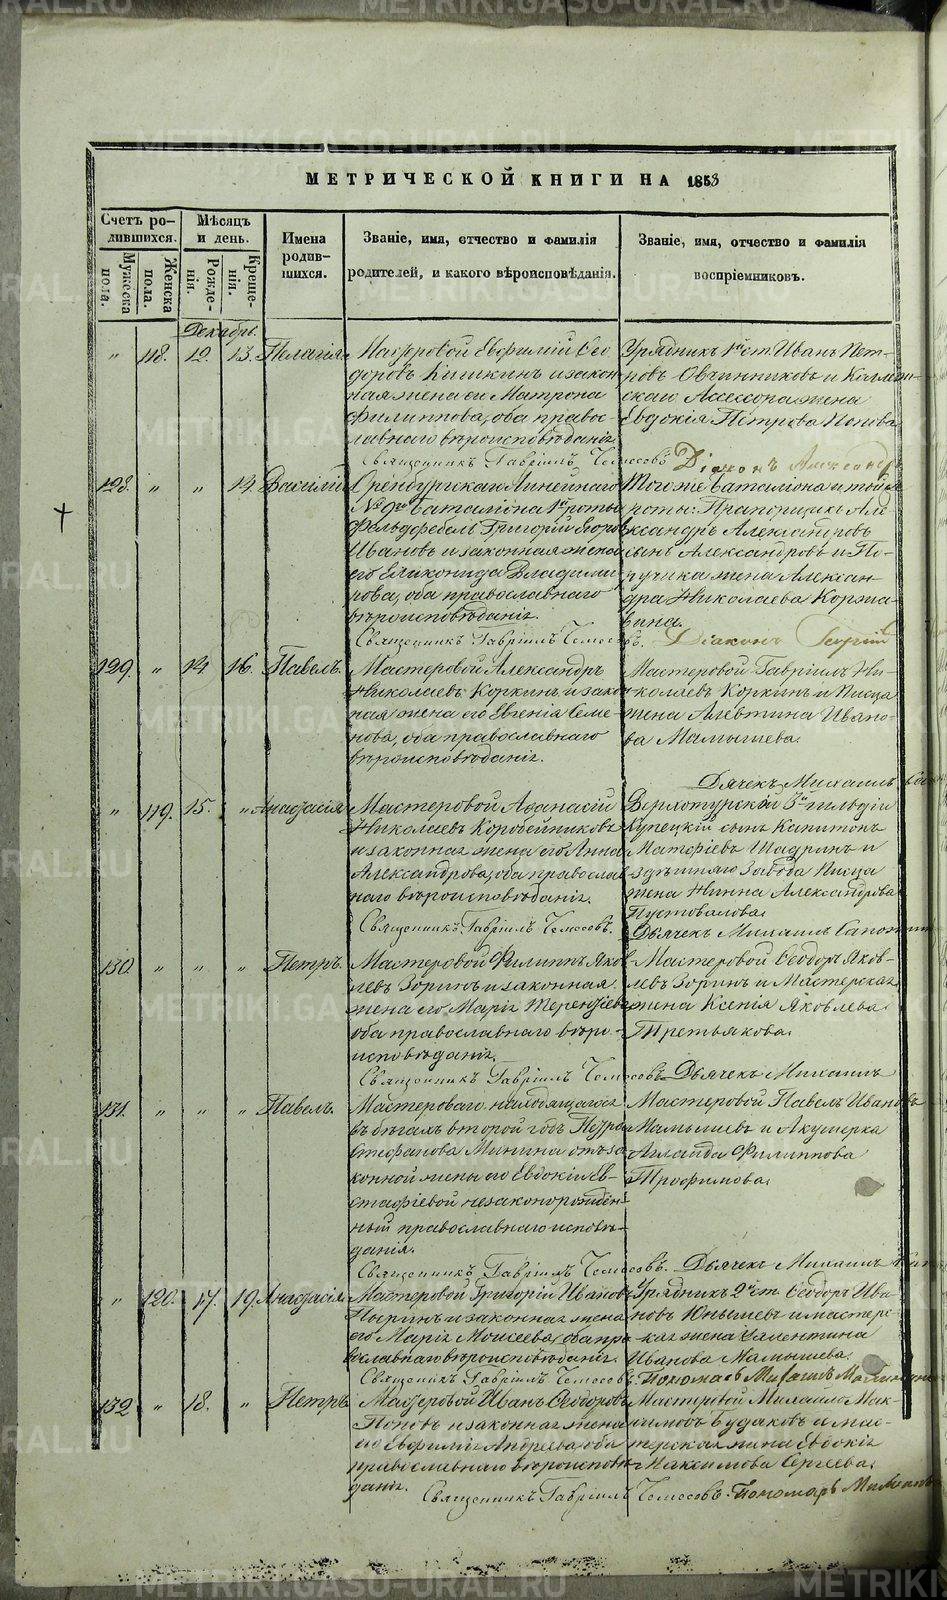 МЕТРИЧЕСКОЙ КНИГИ НА 1853
Счетъ ро-
дившихся.
Мужеска
пола.
Женска
пола.
Мѣсяцъ
и день.
Рожде-
нія.
Креще-
нія.
Имена
родив-
шихся.
Званіе, имя, отчество и фамилія
родителей, и какого вѣроисповѣданія.
Званіе, имя, отчество и фамилія
воспріемниковъ.
Декабрь.
" 118. 12. 13. Пелагія
Мастеровой Евфимій Ѳео
доровъ Кишкинъ и закон
ная жена его Матрона
Филиппова, оба правос-
лавнаго вѣроисповѣданія
Урядникъ 1й ст. Иванъ Пет-
ровъ Овчинниковъ и Коллеж-
скаго Ассессора жена
Евдокія Петрова Попова
Священникъ Гавріилъ Діаконъ Александръ
128. " " 14. Василій
Оренбургскаго Линейнаго
№ 9го баталіона 1й роты
Фельдфебель Григорій Егоровъ
Ивановъ и законная жена
его Еликонида Владими-
рова, оба православнаго
вѣроисповѣданія.
Тогоже баталіона и той же
роты: Прапорщикъ Але-
ксандръ Александровъ
сынъ Александровъ и По-
ручика жена Алексан-
дра Николаева Коржа-
вина.
Священникъ Гавріилъ Діаконъ Георгій
129. " 14. 16. Павелъ.
Мастеровой Александръ
Николаевъ Коркинъ и закон
ная жена его Евгенія Семе-
нова, оба православнаго
вѣроисповѣданія.
Мастеровой Гавріилъ Ни-
колаевъ Коркинъ и Писца
жена Алевтина Ивано-
ва Мамышева.
Дьячекъ Михаилъ
" 119. 15. " Анастасія
Мастеровой Аѳанасій
Николаевъ Коробейниковъ
и законная жена его Анна
Александрова, оба православ
наго вѣроисповѣданія.
Верхотурскій 3й гильдіи
Купецкій сынъ Капитонъ
Матфіевъ Шадринъ и
здѣшняго Завода Писца
жена Нинна Александрова
Пустовалова.
Священникъ Гавріилъ Дьячекъ Михаилъ
130. " " " Петръ.
Мастеровой Филиппъ Яков
левъ Зоринъ и законная
жена его Марія Терентіева
оба православнаго вѣро-
исповѣданія.
Мастеровой Ѳеодоръ Яков-
левъ Зоринъ и Мастерская
жена Ксенія Яковлева
Третьякова.
Священникъ Гавріилъ Дьячекъ Михаилъ
131. " " " Павелъ.
Мастероваго находящагося
въ бѣгахъ второй годъ Петра
Стефанова Минина отъ за
конной жены его Евдокіи Ев-
стафіевой незаконорожден-
ный православнаго исповѣ-
данія.
Мастеровой Павелъ Ивановъ
Мамышевъ и Акушерка
Агланда Филиппова
Трофимова.
Священникъ Гавріилъ Дьячекъ Михаилъ
" 120. 17. 19. Анастасія
Мастеровой Григорій Ивановъ
Пыринъ и законная жена
его Марія Моисеева, оба пра
вославнаго вѣроисповѣданія.
Урядникъ 2й ст. Ѳеодоръ Ива-
новъ Юнышевъ и мастерс-
кая жена Валентина
Иванова Мамышева.
Священникъ Гавріилъ Пономарь Михаилъ
132 " 18. " Петръ
Мастеровой Иванъ Ѳеодоровъ
Поповъ и законная жена
его Евфимія Андреева, оба
православнаго вѣроисповѣ-
данія.
Мастеровой Михаилъ Мак-
симовъ Будаковъ и мас-
терская жена Евдокія
Максимова Сергеева.
Священникъ Гавріилъ Пономарь Михаилъ
METRIKI.GASO-URAL.RU